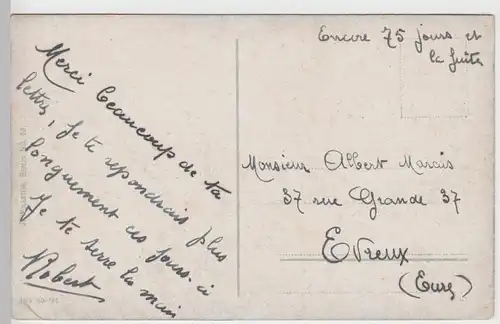 Merci beaucoup de ta
lettre, Je te repondrais plus
longuement ces jours-ci
Je te serre la main
Robert
Encore 75 jours et
la fuite
Monsieur Albert Marais
37 rue Grande 37
Evreux
(Eure)